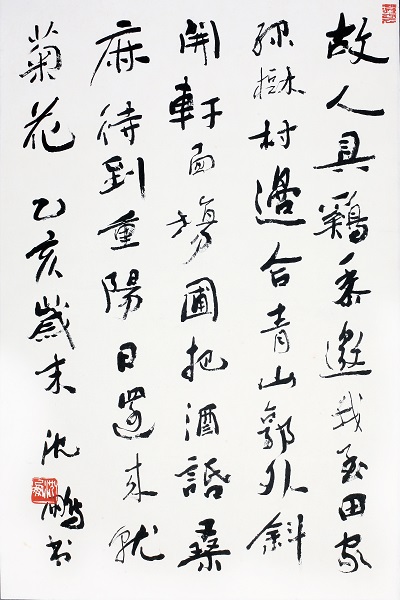 故人具鷄黍邀我至田家
綠樹村邊合青山郭外斜
開軒面場圃把酒話桑
麻待到重陽日還来就
菊花 乙亥歲末 沈鵬書